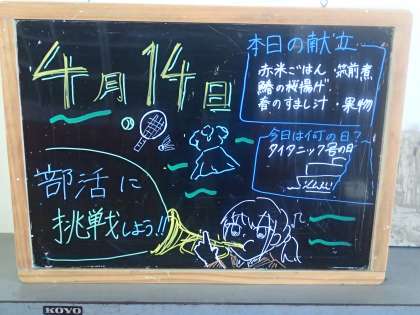 4月14日
本日の献立
赤米ごはん・筑前煮
鰆の桜揚げ
春のすまし汁・果物
今日は何の日?
タイタニック号の日
部活に
挑戦しよう!!
KOYO